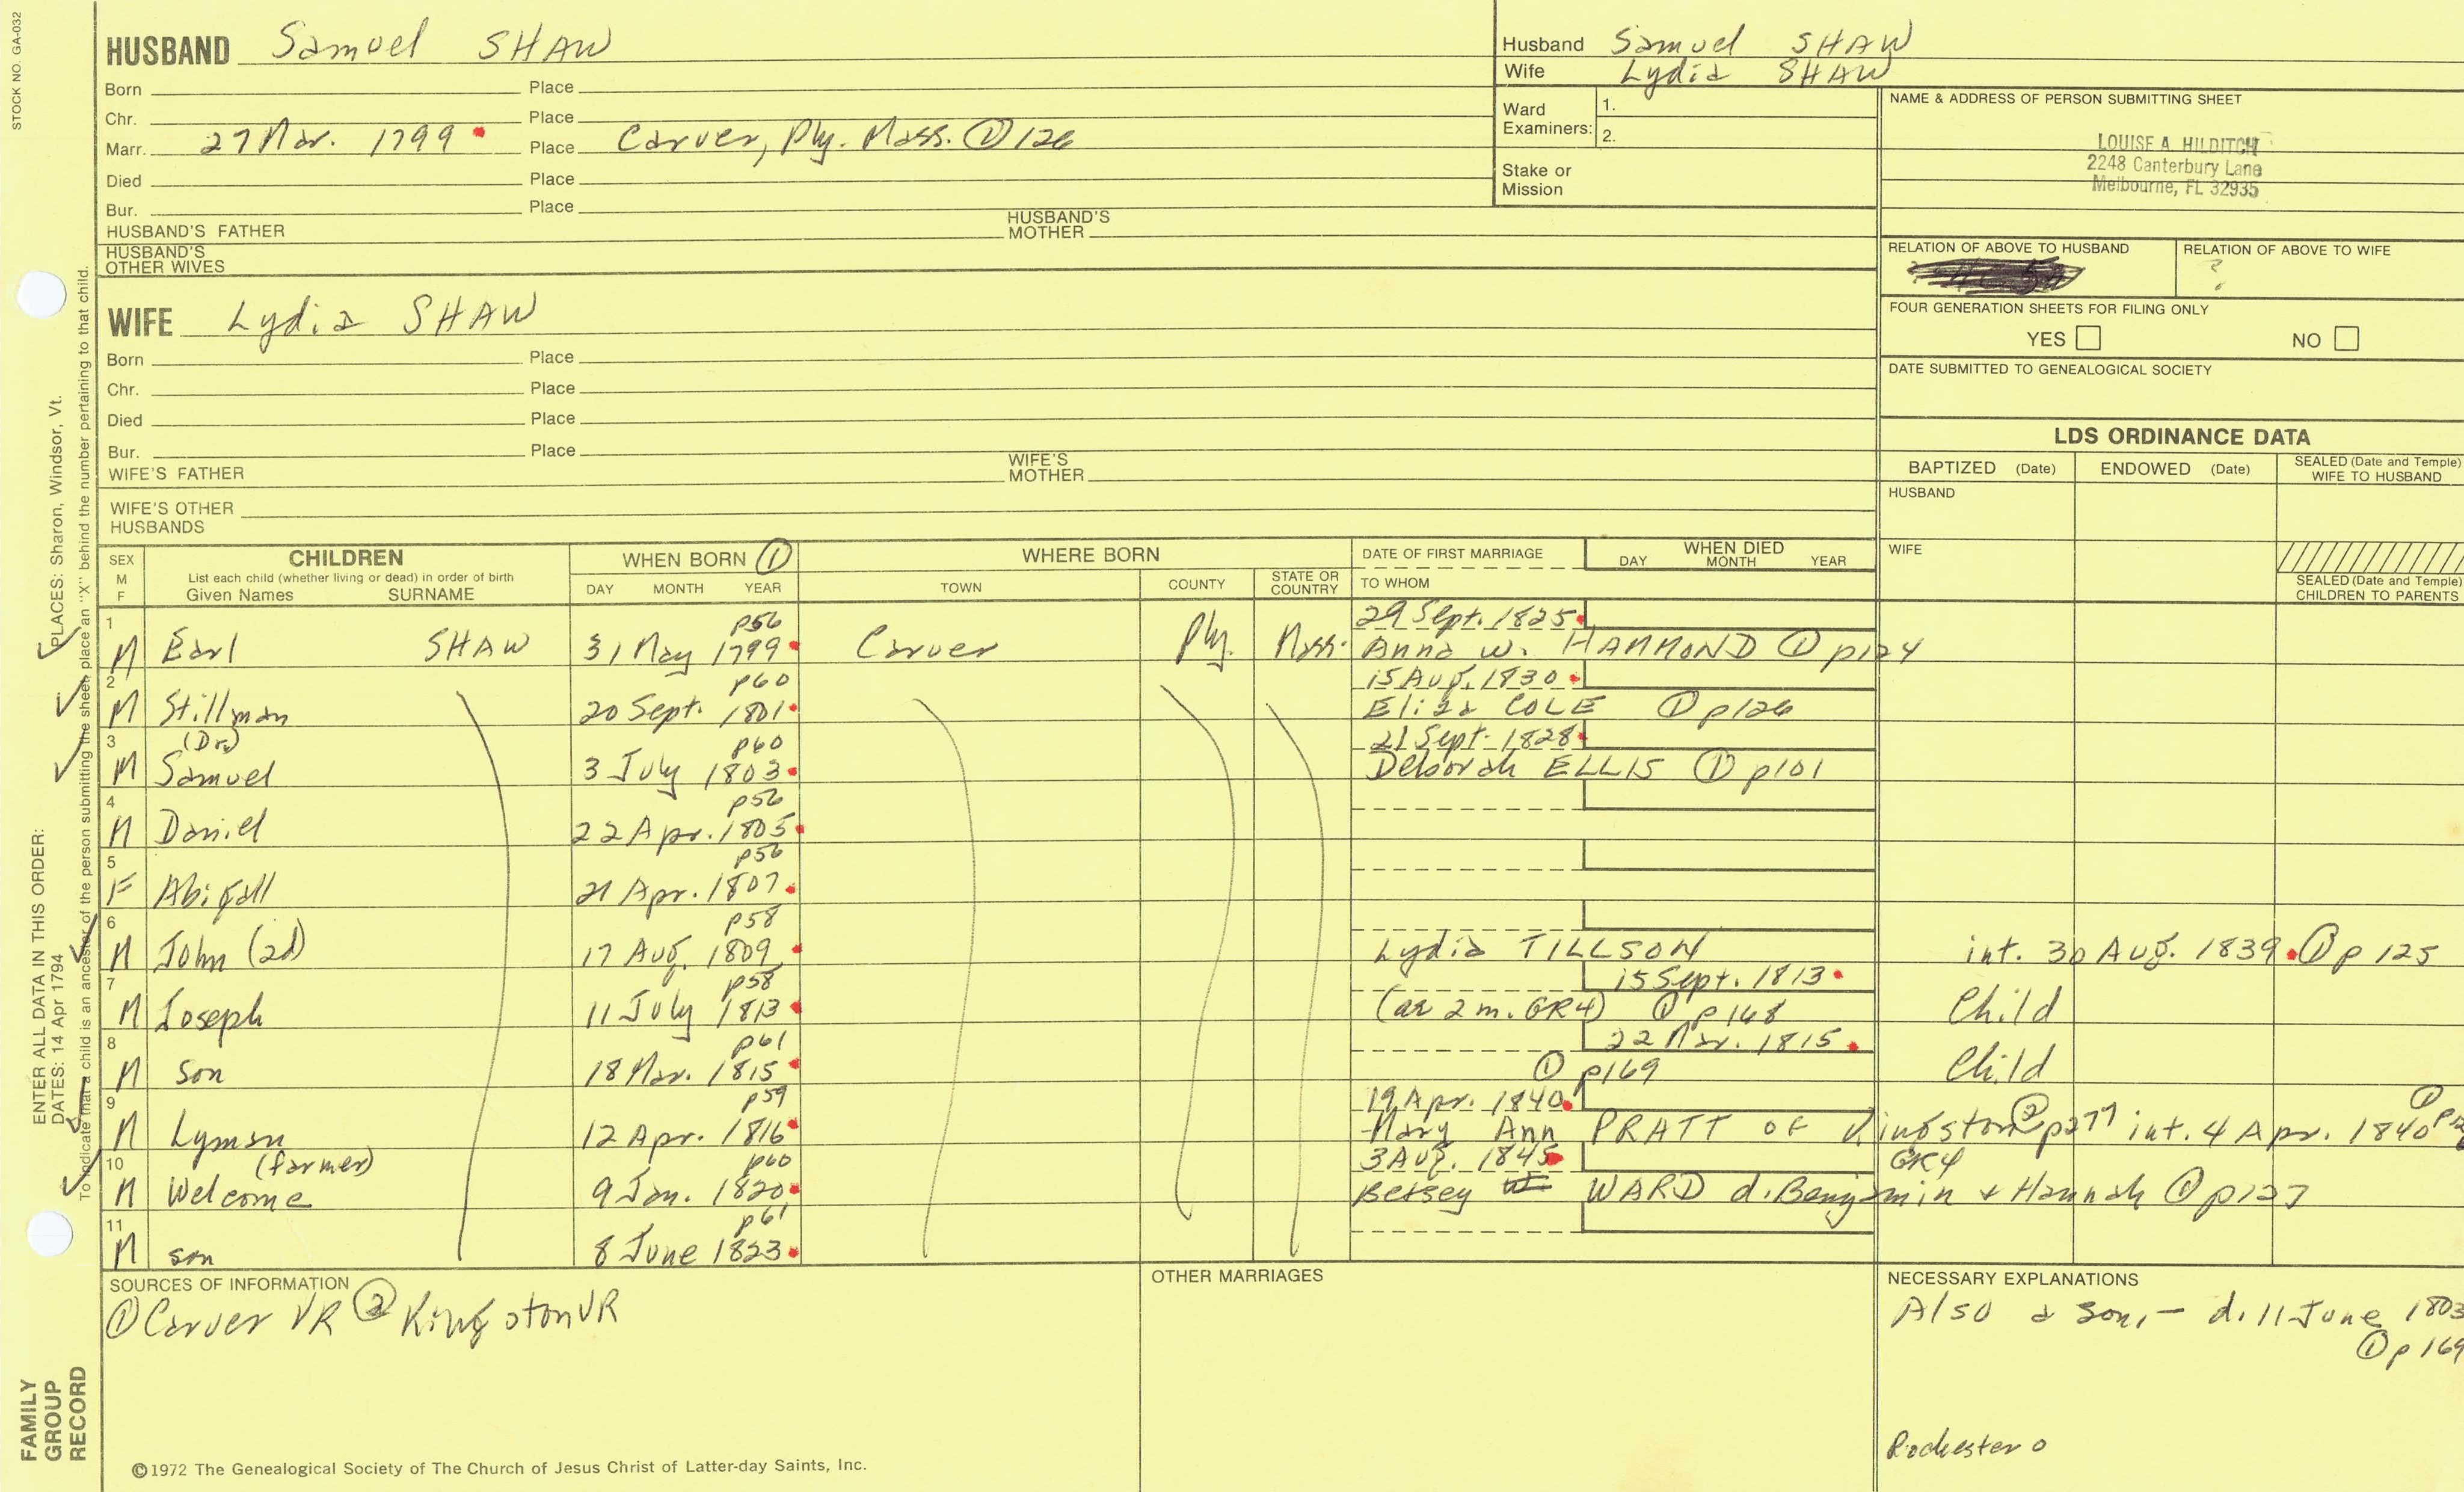 STOCK NO. GA-032
HUSBAND Samuel SHAW
Born Place
Chr. Place
Marr. 27 Mar. 1799 Place Carver, Ply. Mass. ① 126
Died Place
Bur. Place
HUSBAND'S FATHER HUSBAND'S MOTHER
HUSBAND'S OTHER WIVES
Husband Samuel SHAW
Wife Lydia SHAW
Ward Examiners: 1.
2.
Stake or Mission
NAME & ADDRESS OF PERSON SUBMITTING SHEET
LOUISE A. HILDITCH
2248 Canterbury Lane
Melbourne, FL 32935
RELATION OF ABOVE TO HUSBAND RELATION OF ABOVE TO WIFE
?
FOUR GENERATION SHEETS FOR FILING ONLY
YES NO
DATE SUBMITTED TO GENEALOGICAL SOCIETY
WIFE Lydia SHAW
Born Place
Chr. Place
Died Place
Bur. Place
WIFE'S FATHER WIFE'S MOTHER
WIFE'S OTHER HUSBANDS
LDS ORDINANCE DATA
BAPTIZED (Date) ENDOWED (Date) SEALED (Date and Temple) WIFE TO HUSBAND
HUSBAND
WIFE
SEALED (Date and Temple) CHILDREN TO PARENTS
SEX M F
CHILDREN
List each child (whether living or dead) in order of birth
Given Names SURNAME
WHEN BORN ①
DAY MONTH YEAR
WHERE BORN
TOWN COUNTY STATE OR COUNTRY
DATE OF FIRST MARRIAGE
TO WHOM
WHEN DIED
DAY MONTH YEAR
1 p56 29 Sept. 1825
M Earl SHAW 31 May 1799 Carver Ply. Mass. Anna W. HAMMOND ① p124
2 p60 15 Aug. 1830
M Stillman 20 Sept. 1801 Eliza COLE ① p126
3 (Dr.) p60 21 Sept. 1828
M Samuel 3 July 1803 Deborah ELLIS ① p101
4 p56
M Daniel 22 Apr. 1805
5 p56
F Abigall 21 Apr. 1807
6 p58
M John (2d) 17 Aug. 1809 Lydia TILLSON int. 30 Aug. 1839 ① p 125
7 p58 15 Sept. 1813
M Joseph 11 July 1813 (ae 2 m. GR4) ① p168 Child
8 p61 22 Mar. 1815
M son 18 Mar. 1815 ① p169 Child
9 p59 19 Apr. 1840 ①
M Lyman 12 Apr. 1816 Mary Ann PRATT OF Kingston ② p277 int. 4 Apr. 1840
10 (farmer) p60 3 Aug. 1845 GR4
M Welcome 9 Jan. 1820 Betsey WARD d. Benjamin & Hannah ① p127
11 p61
M son 8 June 1823
SOURCES OF INFORMATION
① Carver VR ② Kingston VR
OTHER MARRIAGES
NECESSARY EXPLANATIONS
Also a son, — d. 11 June 1803
① p 169
Rochester 0
©1972 The Genealogical Society of The Church of Jesus Christ of Latter-day Saints, Inc.
ENTER ALL DATA IN THIS ORDER:
DATES: 14 Apr 1794
PLACES: Sharon, Windsor, Vt.
To indicate that a child is an ancestor of the person submitting the sheet, place an "X" behind the number pertaining to that child.
FAMILY
GROUP
RECORD